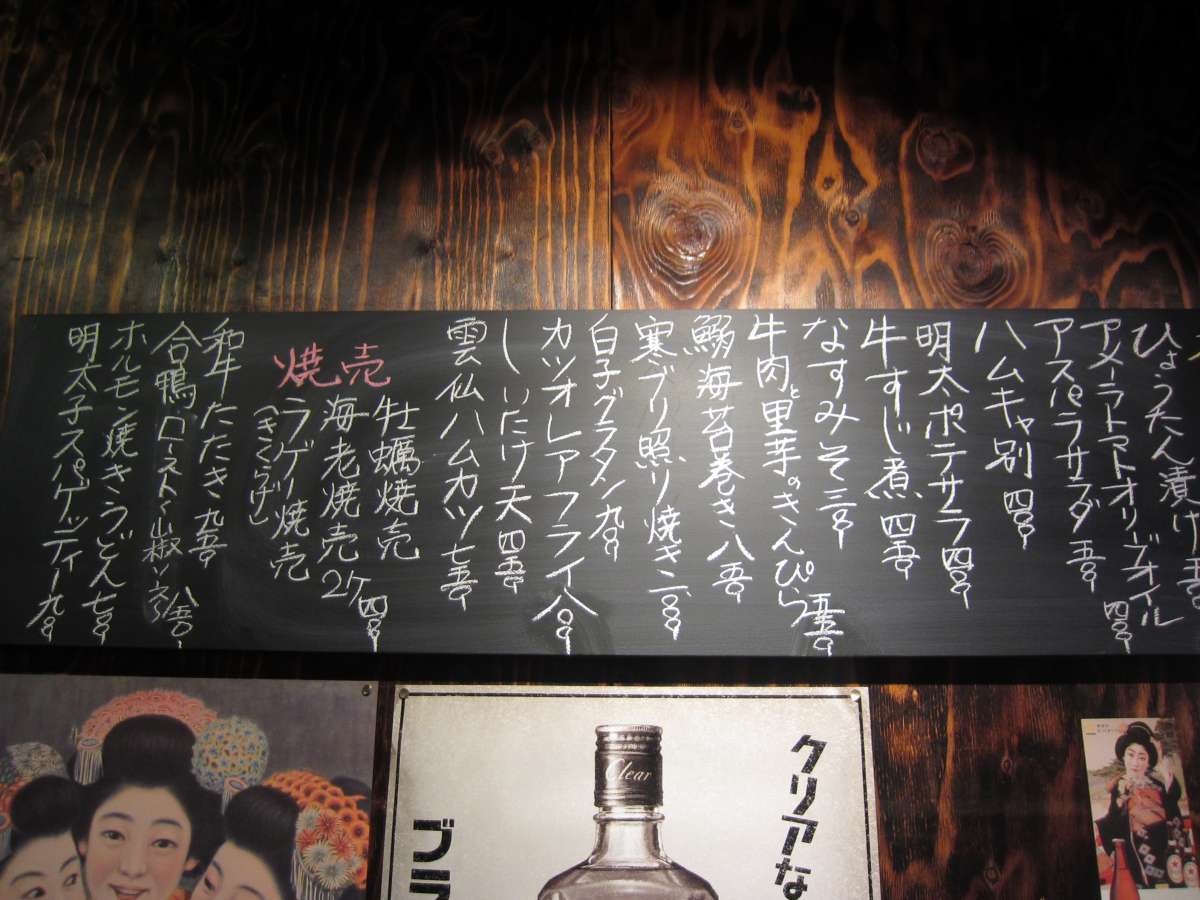 ひょうたん漬け
アメーラトマトオリーブオイル 四〇〇
アスパラサラダ 五〇〇
ハムキャ別 四〇〇
明太ポテサラ 四〇〇
牛すじ煮 四五〇
なすみそ 三〇〇
牛肉と里芋のきんぴら 五五〇
鰯海苔巻き 八五〇
寒ブリ照り焼き 一二〇〇
白子グラタン 九〇〇
カツオレアフライ 八〇〇
しいたけ天 四五〇
雲仙ハムカツ 七五〇
焼売
牡蠣焼売
海老焼売 2ヶ 四〇〇
ラゲー焼売
(きくらげ)
和牛たたき 九五〇
合鴨ロースト〜山椒ソース〜 八五〇
ホルモン焼きうどん 七〇〇
明太子スパゲッティー 九〇〇
クリアな
Clear
ブラ